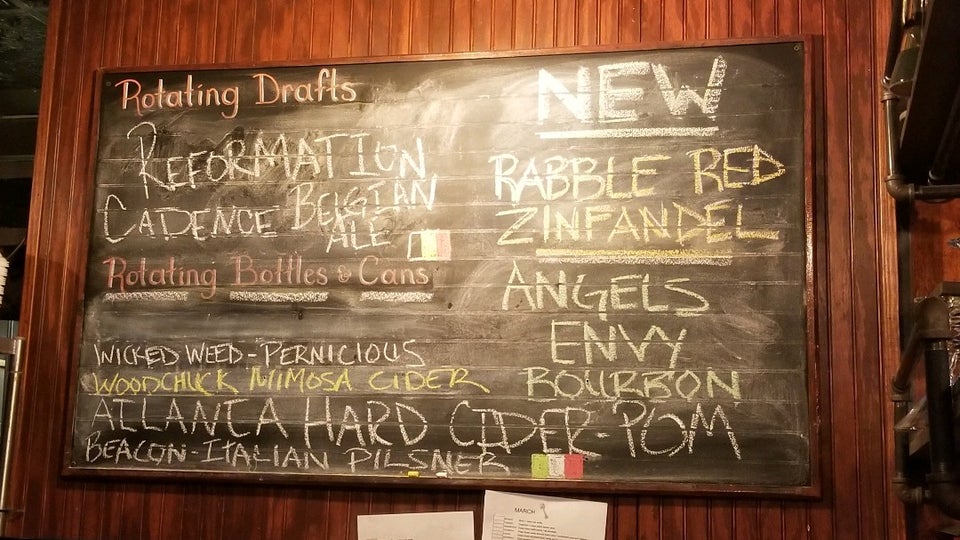 Rotating Drafts
REFORMATION
CADENCE BELGIAN
ALE
Rotating Bottles & Cans
WICKED WEED - PERNICIOUS
WOODCHUCK MIMOSA CIDER
ATLANTA HARD CIDER - POM
BEACON - ITALIAN PILSNER
NEW
RABBLE RED
ZINFANDEL
ANGELS
ENVY
BOURBON
MARCH